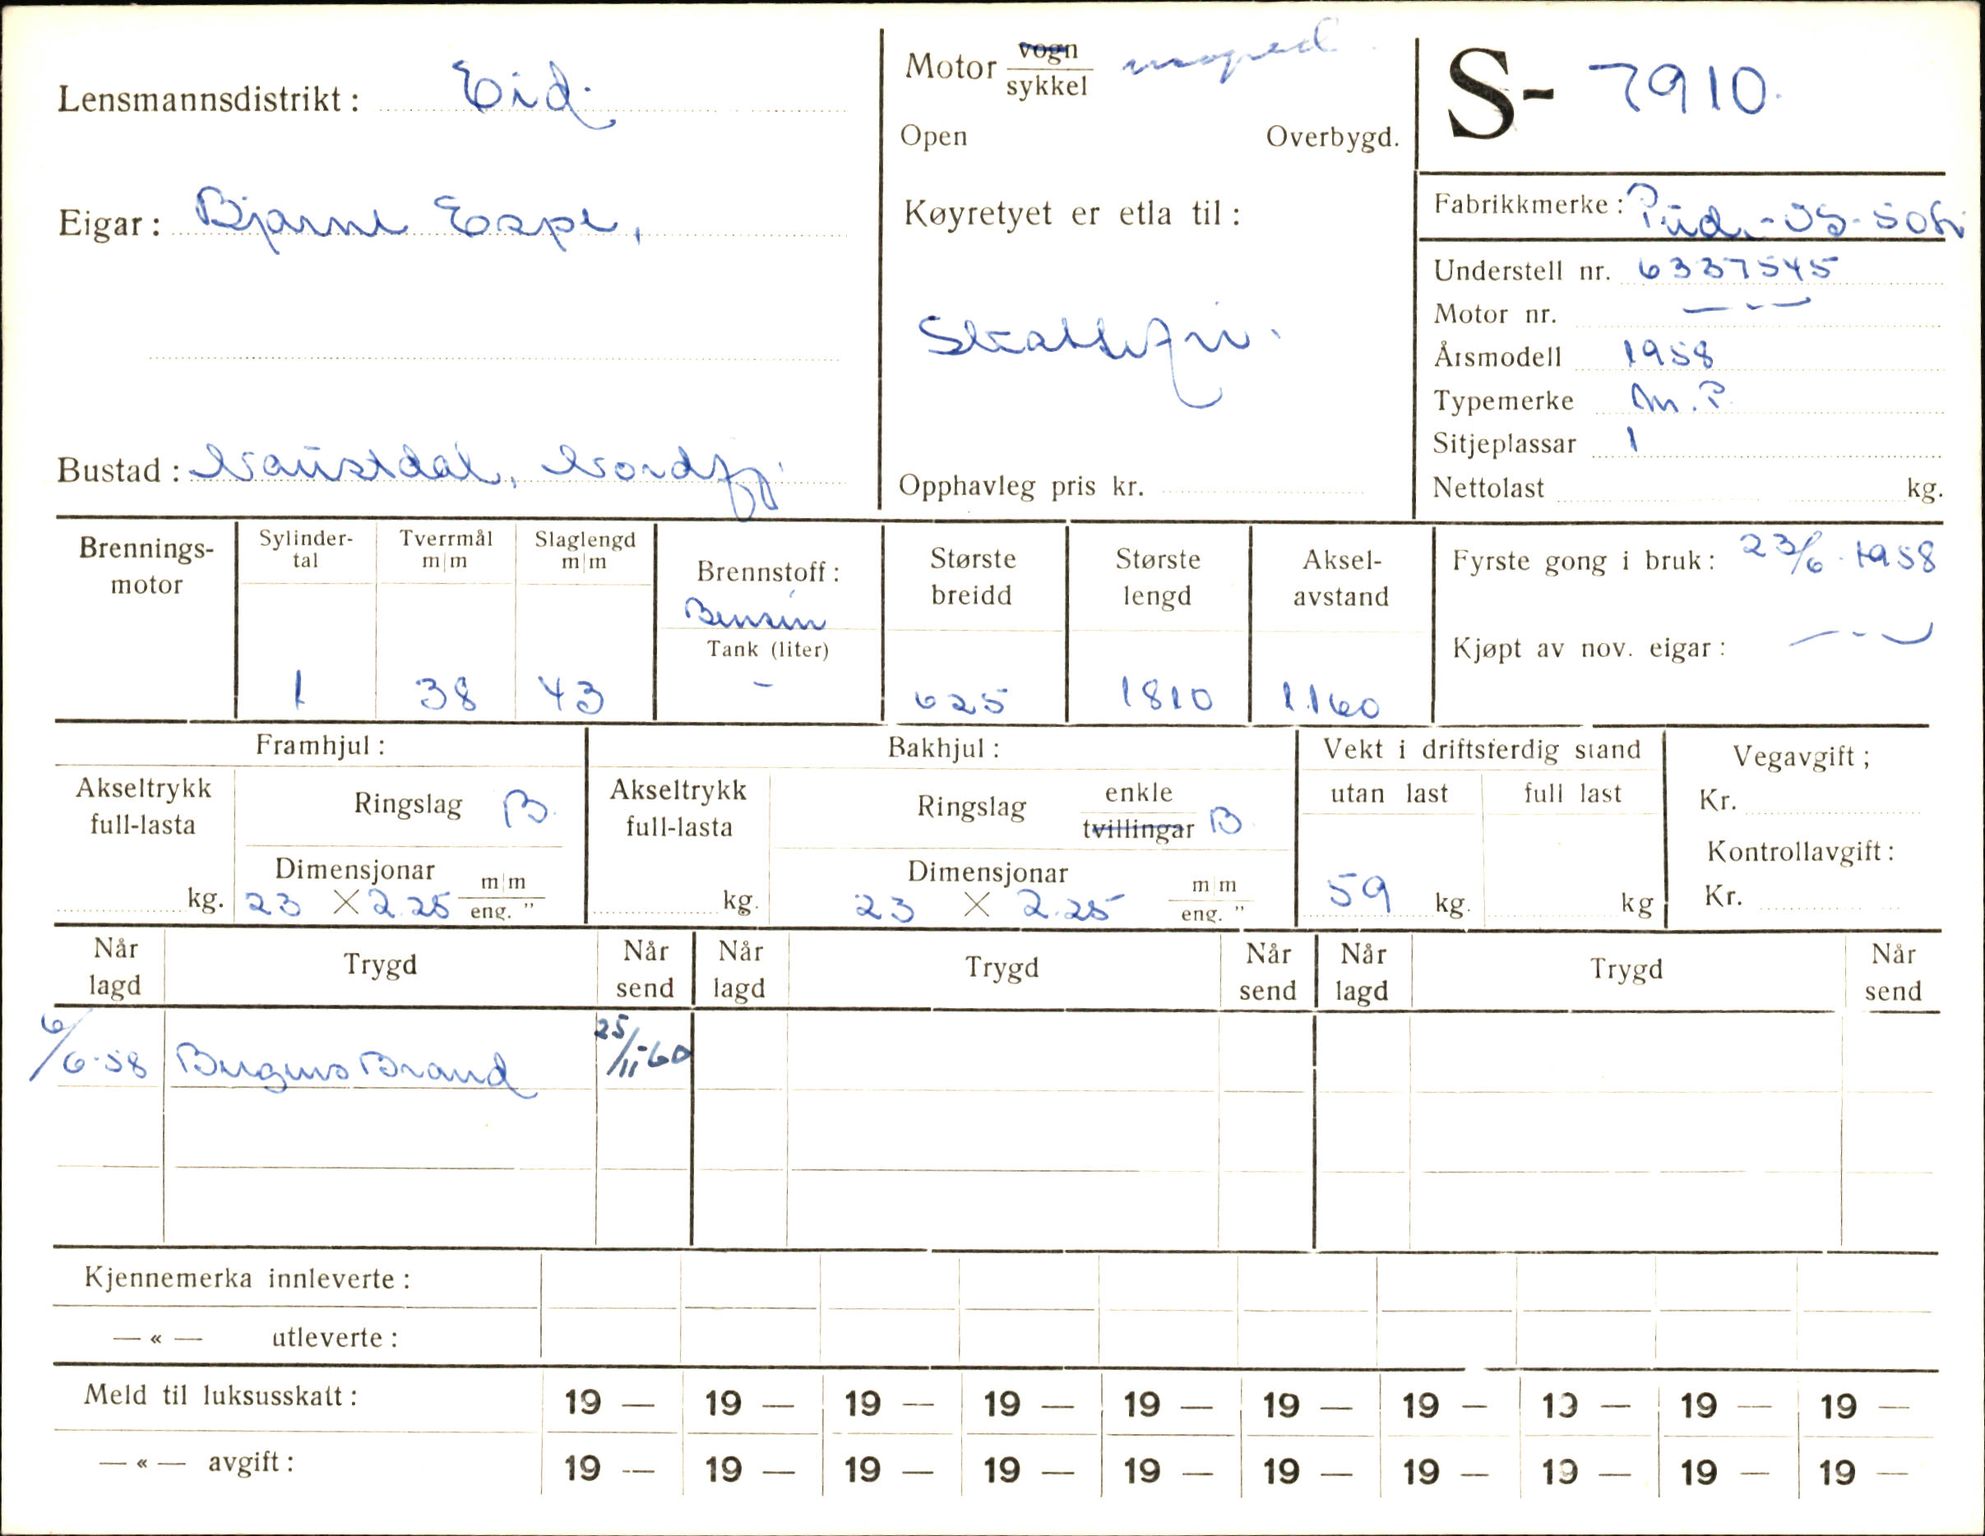 Lensmannsdistrikt: Eid.
Motor vogn/sykkel moped
Open Overbygd.
S- 7910.
Eigar: Bjarne Espe,
Køyretyet er etla til:
Skattefri.
Fabrikkmerke:
Understell nr. 6337545
Motor nr. – – –
Årsmodell 1958
Typemerke M.P.
Sitjeplassar 1
Nettolast kg.
Bustad: Naustdal, Nordfj.
Opphavleg pris kr.
Brennings-motor
Sylinder-tal 1
Tverrmål m|m 38
Slaglengd m|m 43
Brennstoff: Bensin
Tank (liter) -
Største breidd 625
Største lengd 1810
Aksel-avstand 1160
Fyrste gong i bruk: 23/6.1958
Kjøpt av nov. eigar: – – –
Framhjul:
Akseltrykk full-lasta kg.
Ringslag B.
Dimensjonar 23 × 2.25 m|m eng. "
Bakhjul:
Akseltrykk full-lasta kg.
Ringslag enkle tvillingar B
Dimensjonar 23 × 2.25 m|m eng. "
Vekt i driftsferdig stand
utan last 59 kg.
full last kg
Vegavgift;
Kr.
Kontrollavgift:
Kr.
Når lagd Trygd Når send Når lagd Trygd Når send Når lagd Trygd Når send
6/6-58 Bergens Brand 25/11-60
Kjennemerka innleverte:
— « — utleverte:
Meld til luksusskatt: 19 — 19 — 19 — 19 — 19 — 19 — 19 — 19 — 19 — 19 —
— « — avgift: 19 — 19 — 19 — 19 — 19 — 19 — 19 — 19 — 19 — 19 —